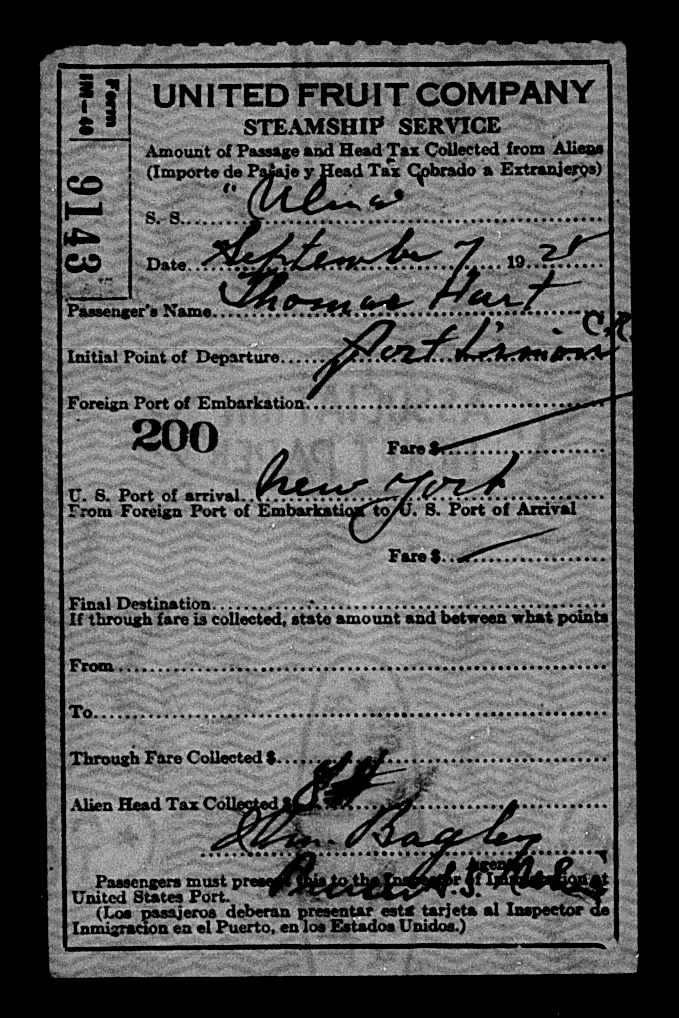 Form
IM-40
9143
UNITED FRUIT COMPANY
STEAMSHIP SERVICE
Amount of Passage and Head Tax Collected from Aliens
(Importe de Pasaje y Head Tax Cobrado a Extranjeros)
S. S. "Ulua"
Date September 7 1928
Passenger's Name Thomas Hart
Initial Point of Departure Port Limon C.R.
Foreign Port of Embarkation
200
Fare $
U. S. Port of arrival New York
From Foreign Port of Embarkation to U. S. Port of Arrival
Fare $
Final Destination
If through fare is collected, state amount and between what points
From
To
Through Fare Collected $
Alien Head Tax Collected $
Bagley
Agent
Passengers must present this to the Inspector of Immigration at
United States Port.
(Los pasajeros deberan presentar esta tarjeta al Inspector de
Inmigracion en el Puerto, en los Estados Unidos.)